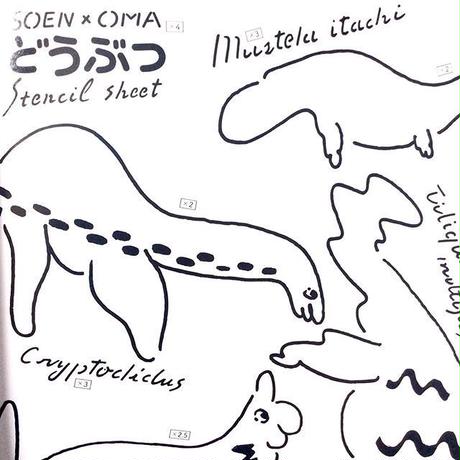 SOEN × OMA ×4
どうぶつ
Stencil sheet
×3
Mustela itachi
×2
×2
Cryptoclidus
×3
×2.5